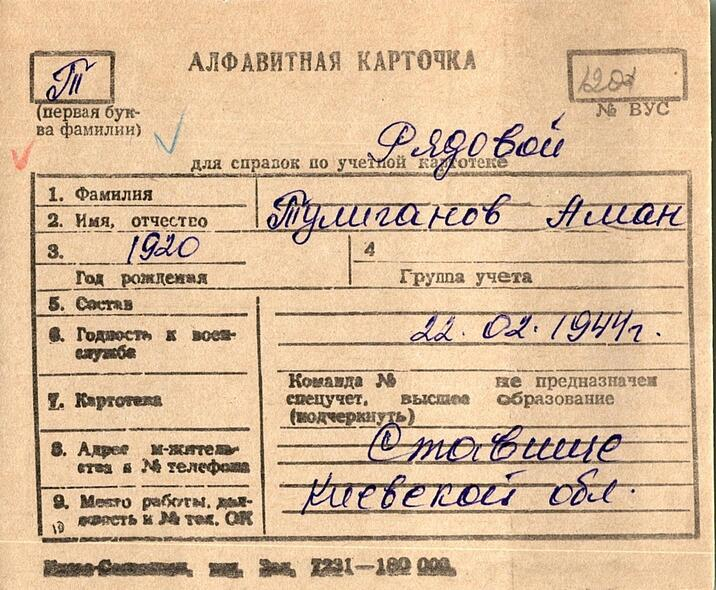 Т
АЛФАВИТНАЯ КАРТОЧКА
(первая бук-
ва фамилии)
№ ВУС
Рядовой
для справок по учетной картотеке
1. Фамилия
2. Имя, отчество
Тулиганов Аман
3. 1920
4
Год рождения
Группа учета
5. Состав
6. Годность к воен-
службе
22.02.1944г.
7. Картотека
Команда № не предназначен
спецучет, высшее образование
(подчеркнуть)
8. Адрес м-житель-
ства и № телефона
Ставище
9. Место работы, дол-
жность и № тел. ОК
Киевской обл.
Зак. 7231—180 000.